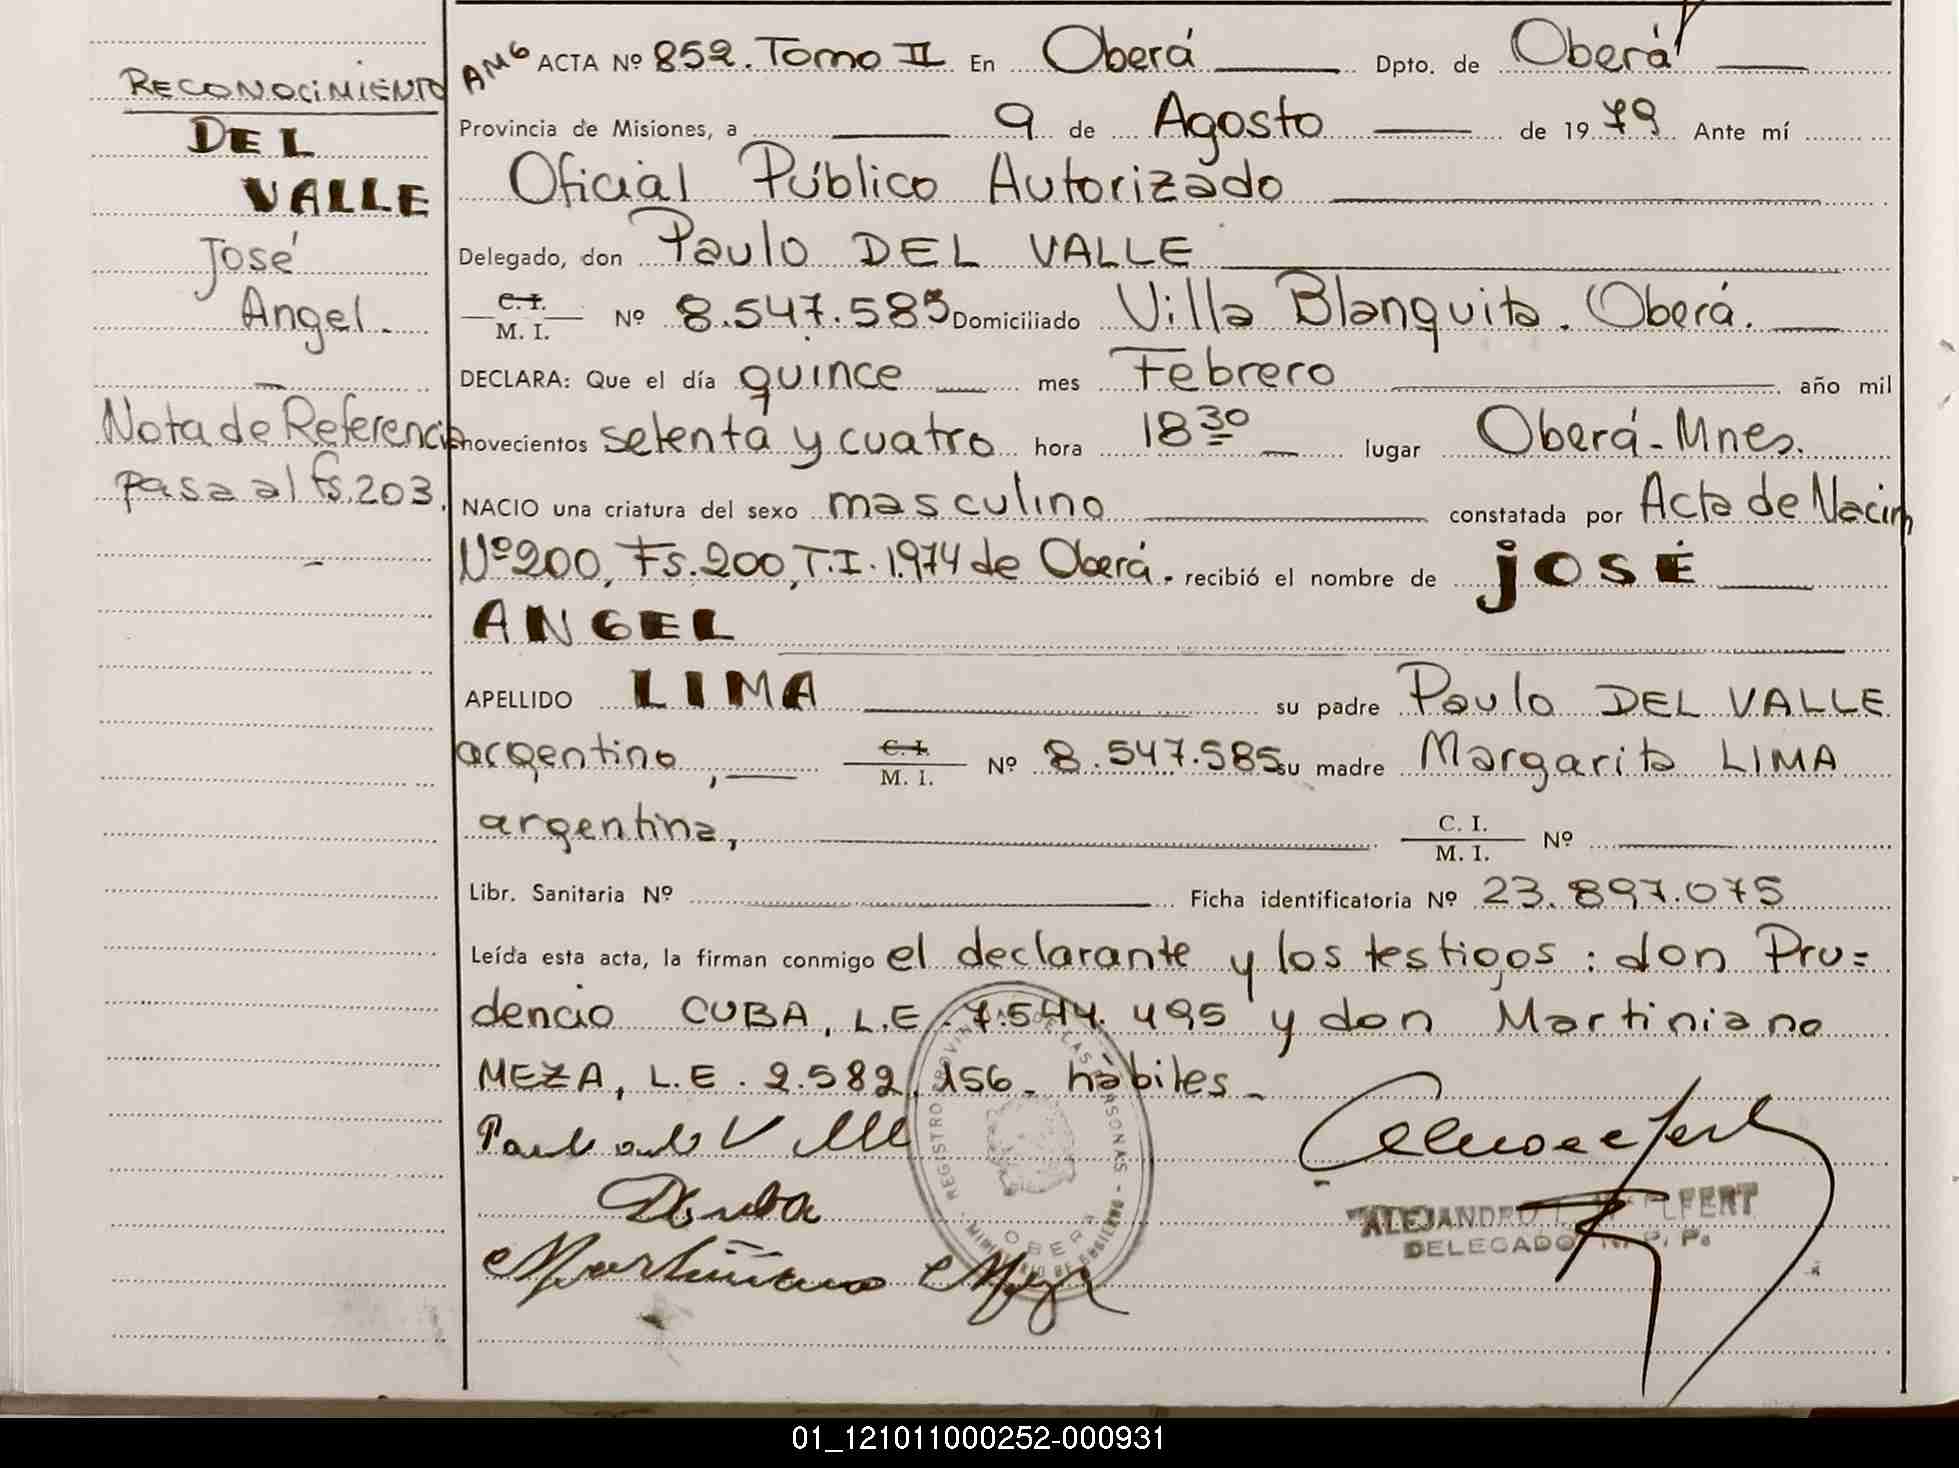 RECONOCIMIENTO
DEL
VALLE
José
Angel.
Nota de Referencia
pasa al fs. 203.
AMG ACTA Nº 852. Tomo II En Oberá Dpto. de Oberá
Provincia de Misiones, a 9 de Agosto de 1979 Ante mí
Oficial Público Autorizado
Delegado, don Paulo DEL VALLE
C. I. / M. I. Nº 8.547.585 Domiciliado Villa Blanquita. Oberá.
DECLARA: Que el día quince mes Febrero año mil
novecientos setenta y cuatro hora 18 30 lugar Oberá - Mnes.
NACIO una criatura del sexo masculino constatada por Acta de Nacim
Nº 200, Fs. 200, T.I. 1.974 de Oberá. recibió el nombre de JOSÉ
ANGEL
APELLIDO LIMA su padre Paulo DEL VALLE
argentino, C. I. / M. I. Nº 8.547.585 su madre Margarita LIMA
argentina, C. I. / M. I. Nº
Libr. Sanitaria Nº Ficha identificatoria Nº 23.897.075
Leída esta acta, la firman conmigo el declarante y los testigos: don Pru=
dencio CUBA, L.E. 7.544.495 y don Martiniano
MEZA, L.E. 2.582.156 - hàbiles -
REGISTRO PROVINCIAL DE LAS PERSONAS - OBERA
Martiniano Meza
ALEJANDRO
DELEGADO R. P. P.
01_121011000252-000931